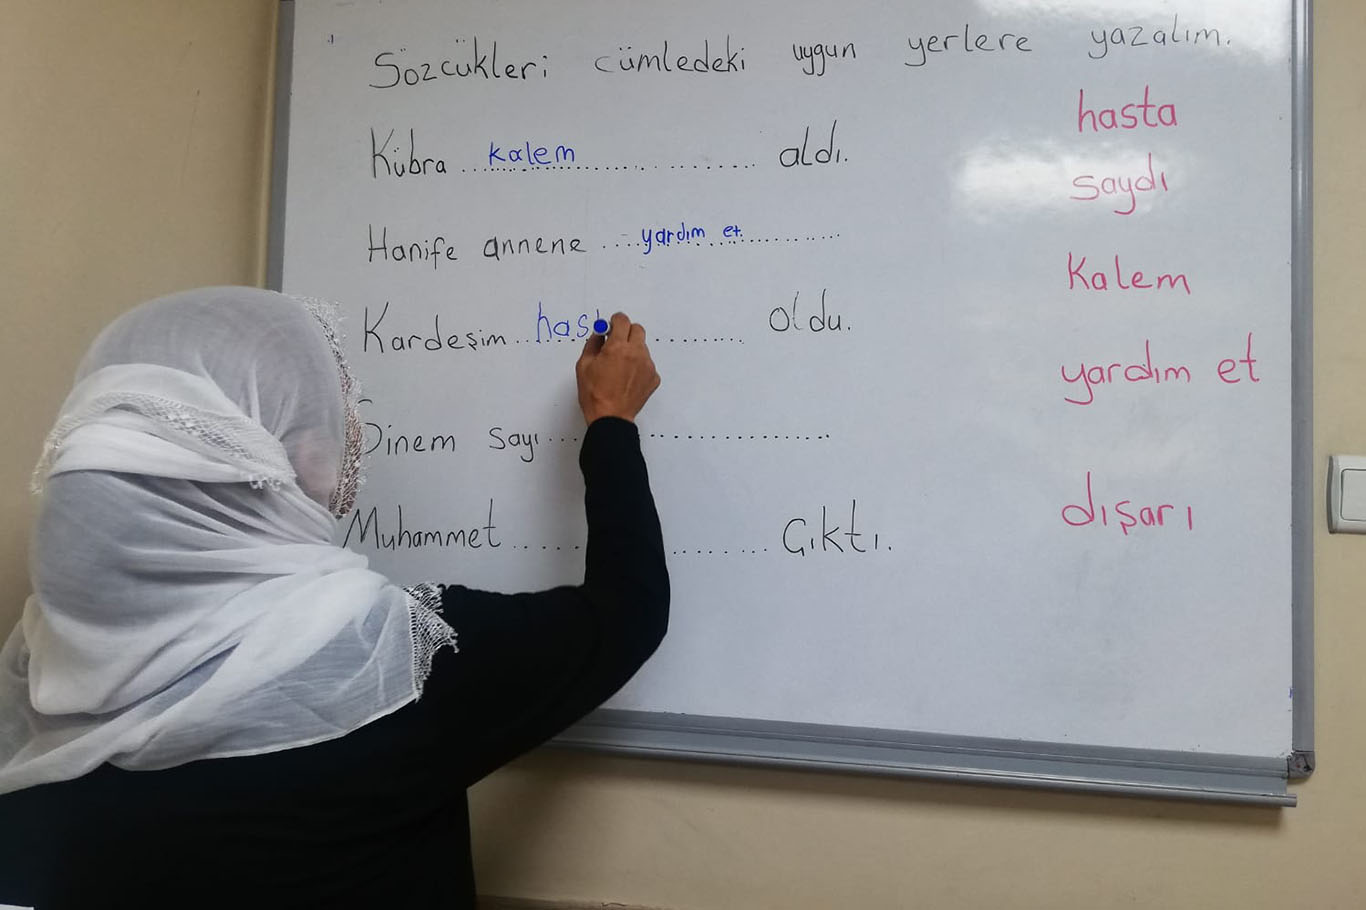 Sözcükleri cümledeki uygun yerlere yazalım.
Kübra kalem aldı.
Hanife annene yardım et.
Kardeşim has oldu.
Sinem sayı
Muhammet Çıktı.
hasta
saydı
Kalem
yardım et
dışarı